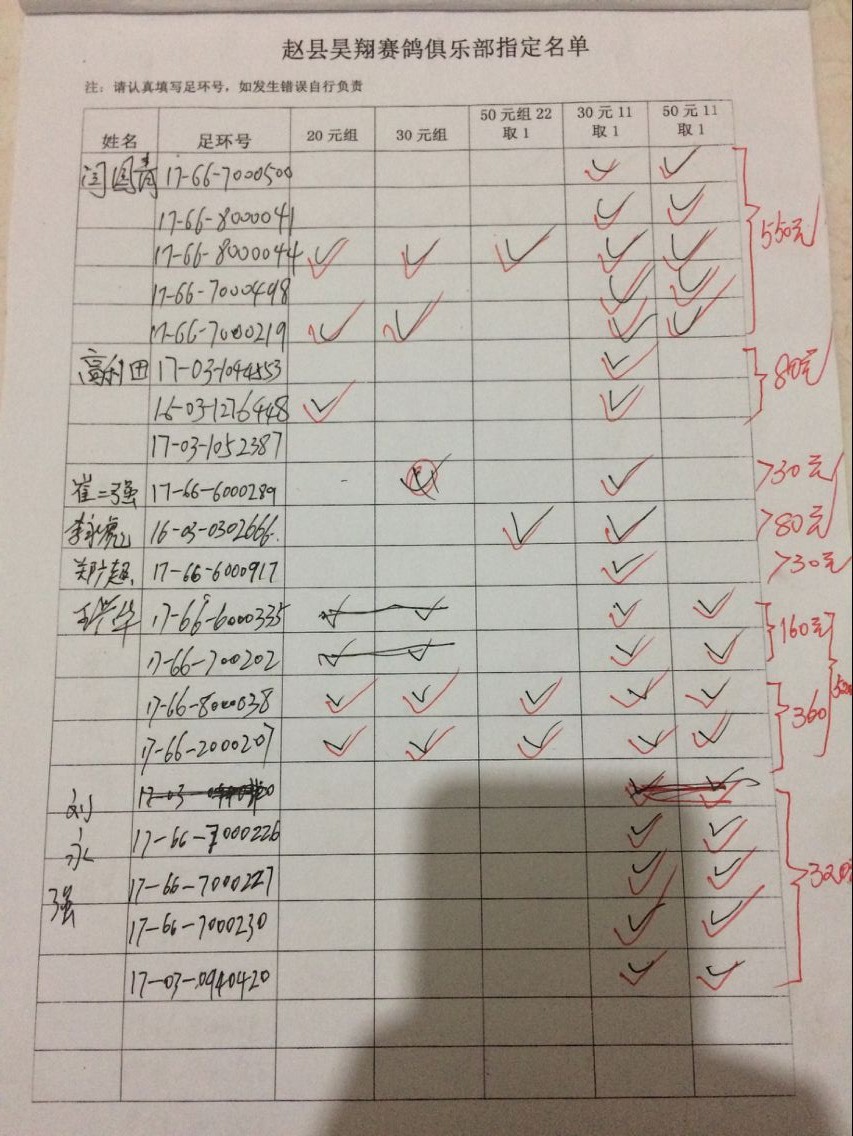 赵县昊翔赛鸽俱乐部指定名单
注：请认真填写足环号，如发生错误自行负责
姓名 足环号 20元组 30元组 50元组22取1 30元11取1 50元11取1
闫国青 17-66-7000500 ✓ ✓
17-66-8000041 ✓ ✓
17-66-8000044 ✓ ✓ ✓ ✓ ✓
17-66-7000498 ✓ ✓
17-66-7000219 ✓ ✓ ✓ ✓
550元
高利田 17-03-1044553 ✓
16-03-1276448 ✓ ✓
80元
17-03-1052387
崔二强 17-66-6000289 ✓ 30元
李永 16-03-0302666. ✓ ✓ 80元
郑广超 17-66-6000917 ✓ 30元
王兴华 17-66-6000335 ✓ ✓ ✓ ✓
17-66-700202 ✓ ✓ ✓ ✓
160元
17-66-8000038 ✓ ✓ ✓ ✓ ✓
17-66-2000207 ✓ ✓ ✓ ✓ ✓
360
刘永强 17-03 ✓ ✓
17-66-7000226 ✓ ✓
17-66-7000227 ✓ ✓
17-66-7000230 ✓ ✓
17-03-0940420 ✓ ✓
320元